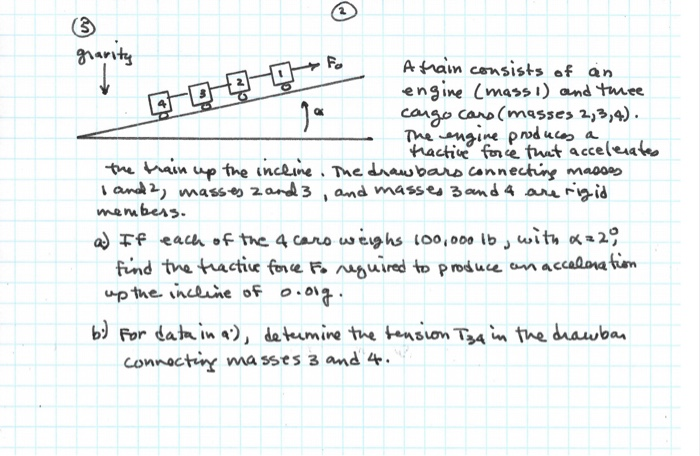 2
3
gravity
F₀
1
2
3
4
α
A train consists of an
engine (mass 1) and three
cargo cars (masses 2,3,4).
The engine produces a
tractive force that accelerates
the train up the incline. The drawbars connecting masses
1 and 2, masses 2 and 3, and masses 3 and 4 are rigid
members.
a.) If each of the 4 cars weighs 100,000 lb, with α=2°,
find the tractive force F₀ required to produce an acceleration
up the incline of 0.01g.
b.) For data in a.), determine the tension T₃₄ in the drawbar
connecting masses 3 and 4.